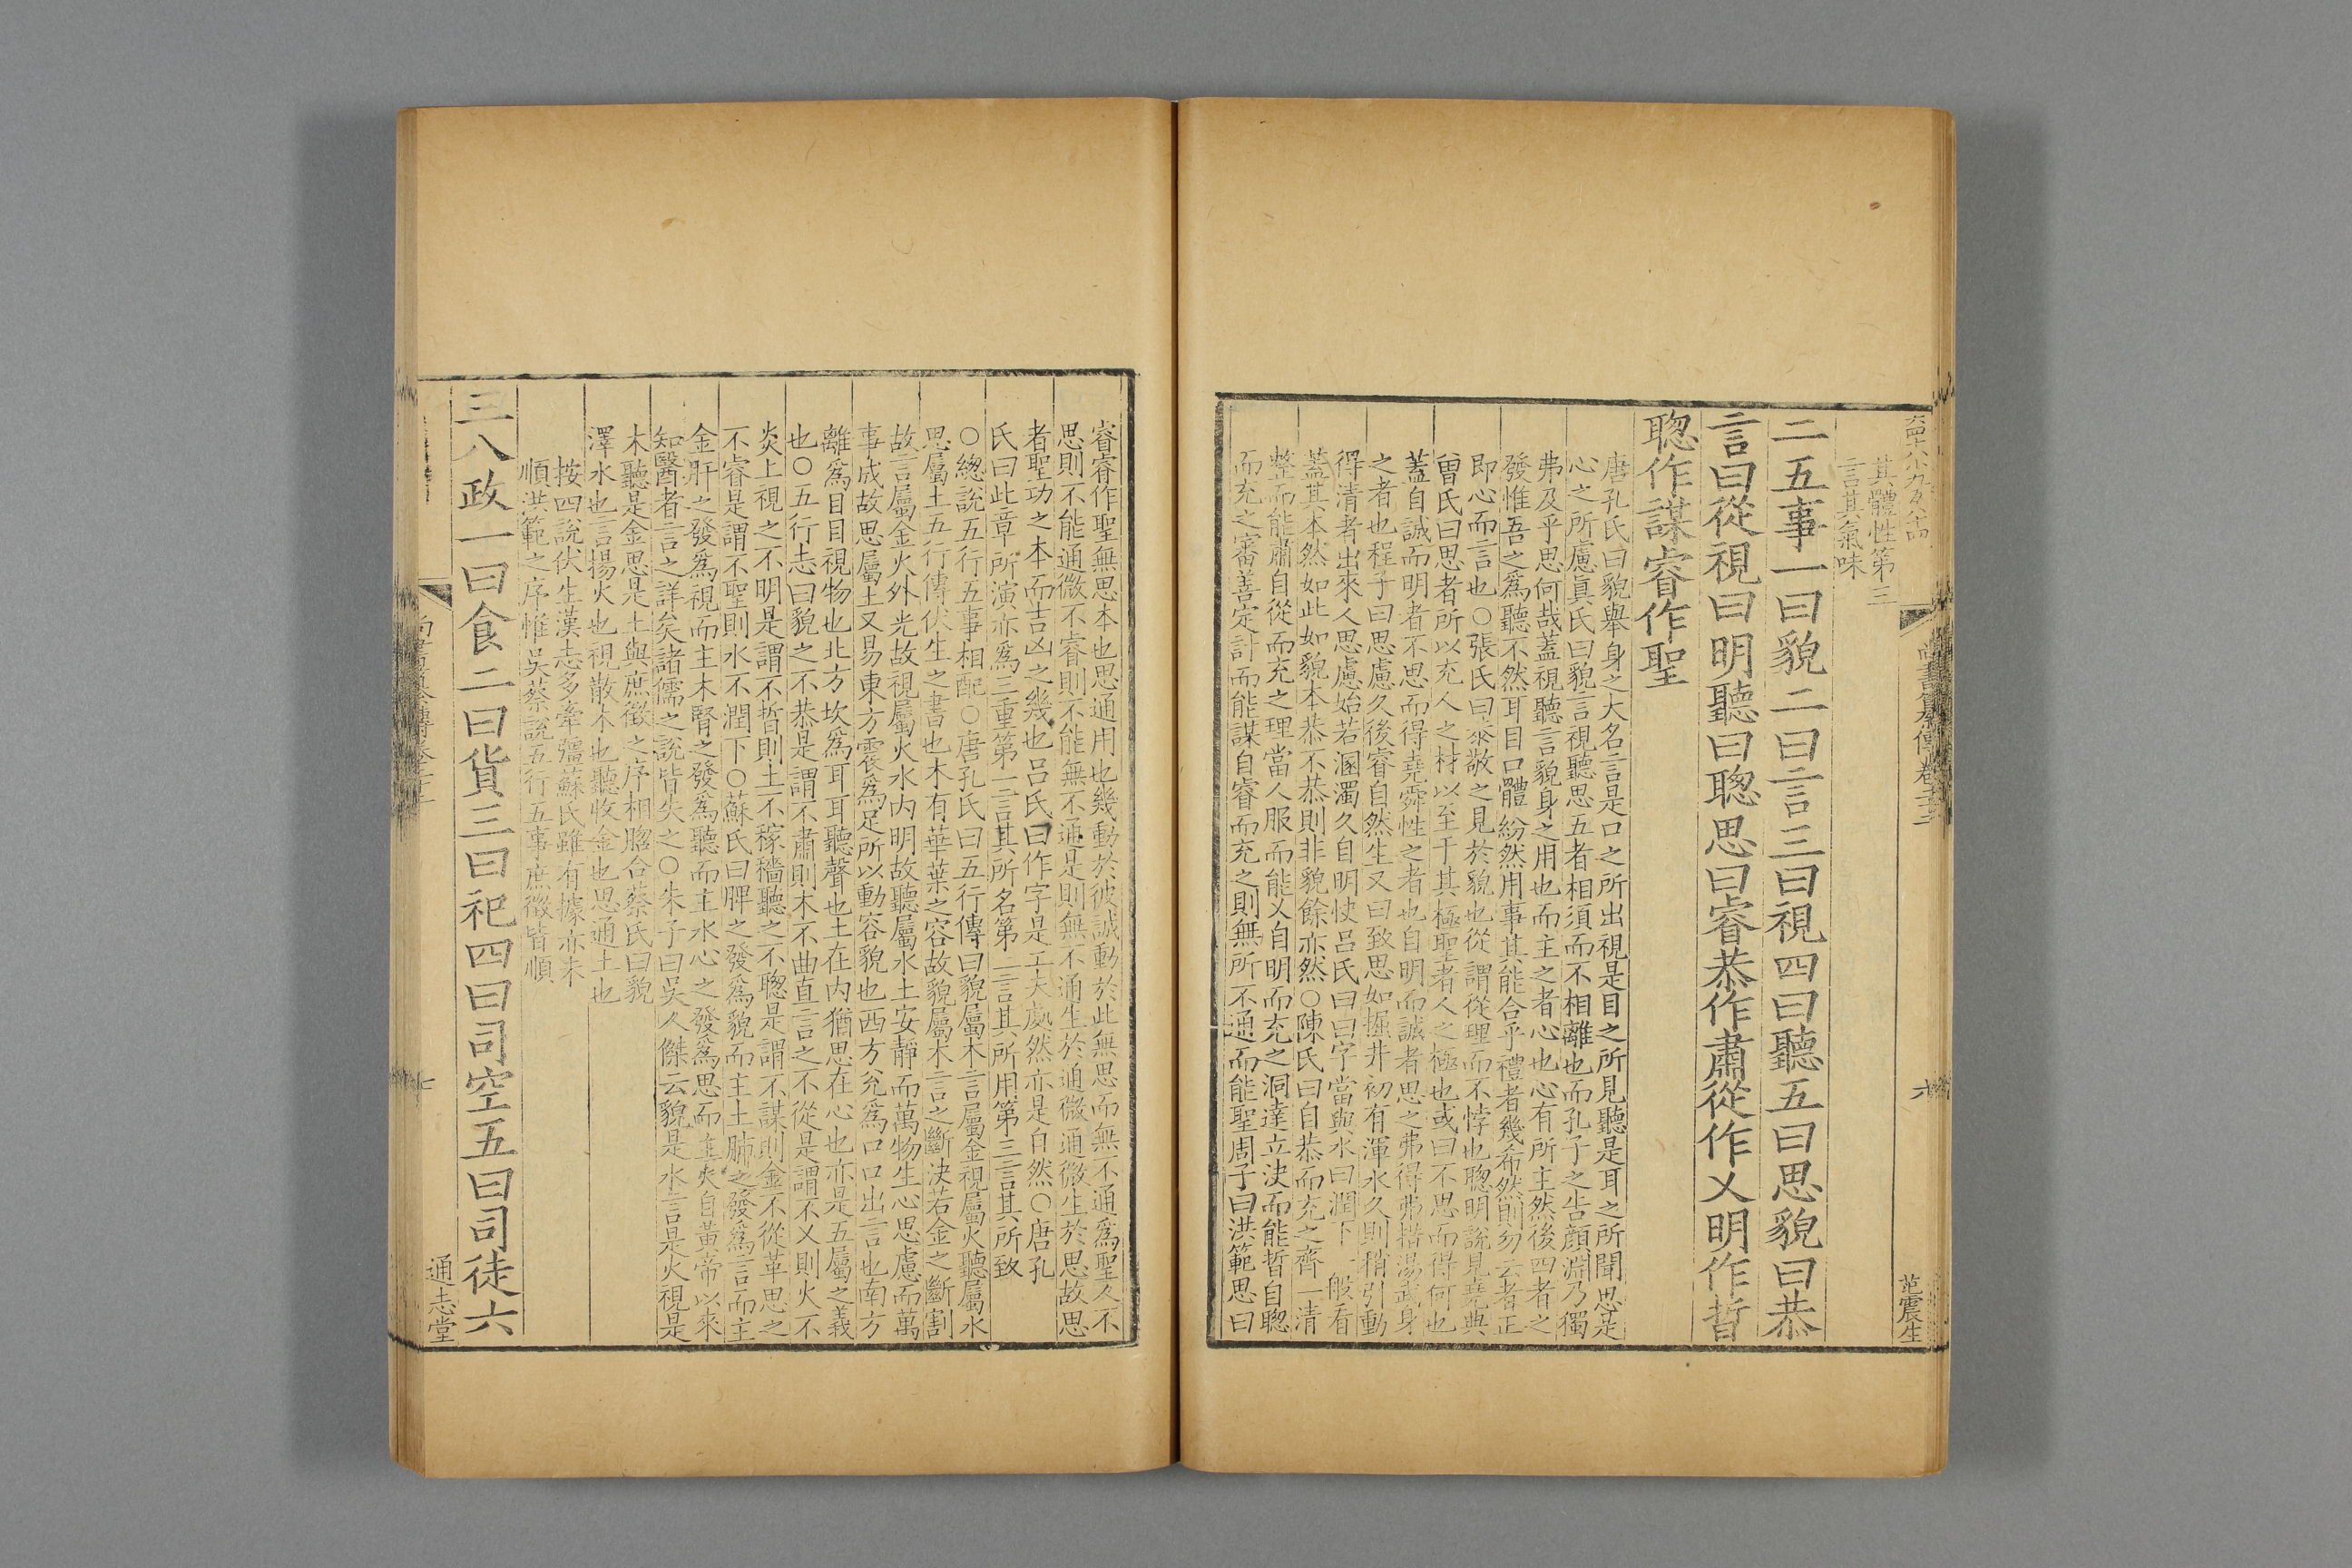 其體性第三
言其氣味
二五事一曰貌二曰言三曰視四曰聽五曰思貌曰恭
言曰從視曰明聽曰聰思曰睿恭作肅從作乂明作晢
聰作謀睿作聖
唐孔氏曰貌舉身之大名言是口之所出視是目之所見聽是耳之所聞思是
心之所慮眞氏曰貌言視聽思五者相須而不相離也而孔子之告顔淵乃獨
弗及乎思何哉蓋視聽言貌身之用也而主之者心也心有所主然後四者之
發惟吾之爲聽不然耳目口體紛然用事其能合乎禮者幾希然則勿云者正
即心而言也○張氏曰恭敬之見於貌也從謂從理而不悖也聰明說見堯典
曾氏曰思者所以充人之材以至于其極聖者人之極也或曰不思而得何也
蓋自誠而明者不思而得堯舜性之者也自明而誠者思之弗得弗措湯武身
之者也程子曰思慮久後睿自然生又曰致思如掘井初有渾水久則稍引動
得清者出來人思慮始若溷濁久自明快呂氏曰曰字當與水曰潤下一般看
蓋其本然如此如貌本恭不恭則非貌餘亦然○陳氏曰自恭而充之齊一清
整而能肅自從而充之理當人服而能乂自明而充之洞達立決而能晢自聰
而充之審善定計而能謀自睿而充之則無所不通而能聖周子曰洪範思曰
尚書纂傳卷
六
范震生
睿睿作聖無思本也思通用也幾動於彼誠動於此無思而無不通爲聖人不
思則不能通微不睿則不能無不通是則無不通生於通微通微生於思故思
者聖功之本而吉凶之幾也呂氏曰作字是工夫處然亦是自然○唐孔
氏曰此章所演亦爲三重第一言其所名第二言其所用第三言其所致
○總說五行五事相配○唐孔氏曰五行傳曰貌屬木言屬金視屬火聽屬水
思屬土五行傳伏生之書也木有華葉之容故貌屬木言之斷決若金之斷割
故言屬金火外光故視屬火水內明故聽屬水土安靜而萬物生心思慮而萬
事成故思屬土又易東方震爲足所以動容貌也西方兊爲口口出言也南方
離爲目目視物也北方坎爲耳耳聽聲也土在內猶思在心也亦是五屬之義
也○五行志曰貌之不恭是謂不肅則木不曲直言之不從是謂不乂則火不
炎上視之不明是謂不晢則土不稼穡聽之不聰是謂不謀則金不從革思之
不睿是謂不聖則水不潤下○蘇氏曰脾之發爲貌而主土肺之發爲言而主
金肝之發爲視而主木腎之發爲聽而主水心之發爲思而主火自黃帝以來
知醫者言之詳矣諸儒之說皆失之○朱子曰吳人傑云貌是水言是火視是
木聽是金思是土與庶徵之序相脗合蔡氏曰貌
澤水也言揚火也視散木也聽收金也思通土也
按四說伏生漢志多牽彊蘇氏雖有據亦未
順洪範之序惟吳蔡說五行五事庶徵皆順
三八政一曰食二曰貨三曰祀四曰司空五曰司徒六
七
通志堂